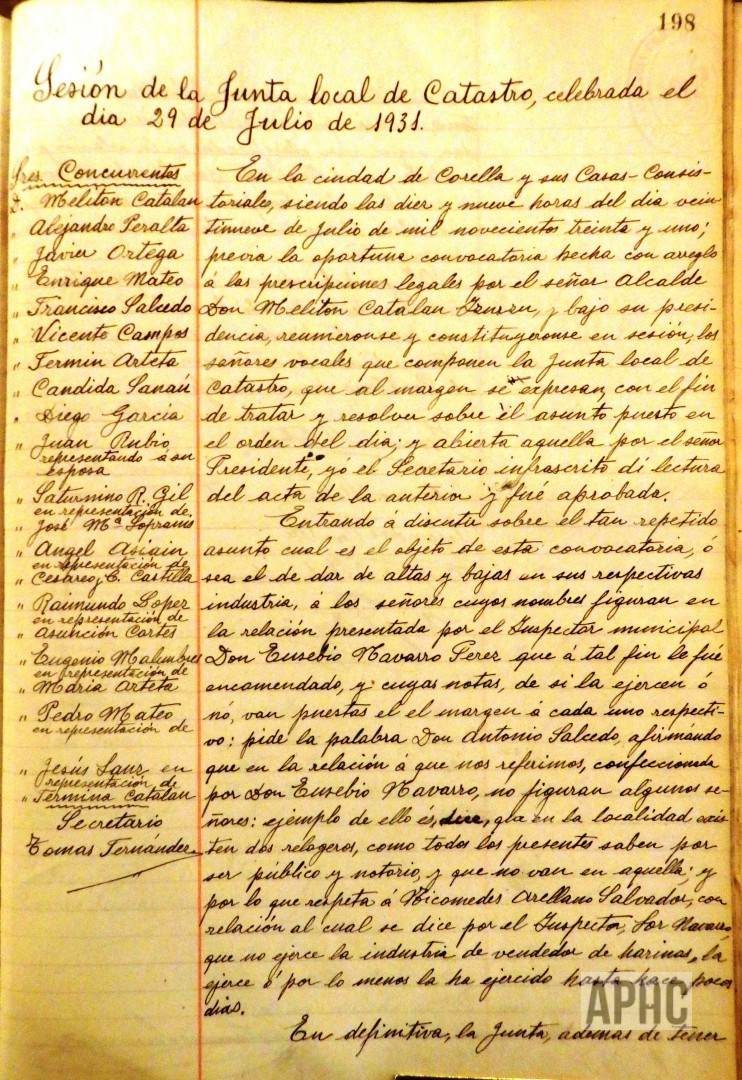 198
Sesión de la Junta local de Catastro, celebrada el
dia 29 de Julio de 1931.
Sres Concurrentes
D. Meliton Catalan
" Alejandro Peralta
" Javier Ortega
" Enrique Mateo
" Francisco Salcedo
" Vicente Campos
" Fermin Arteta
" Candida Sanaú
" Diego Garcia
" Juan Rubio
representando á su
esposa
" Saturnino R. Gil
en representación de
" José Mª Sopranis
" Angel Asiain
en representación de
" Cesareo, C. Castilla
" Raimundo Lopez
en representación de
" Asunción Cortés
" Eugenio Malumbres
en representación de
" Maria Arteta
" Pedro Mateo
en representación de
" Jesús Sanz en
representación de
" Fermina Catalan
Secretario
Tomas Fernández
En la ciudad de Corella y sus Casas-Consis-
toriales, siendo las diez y nueve horas del dia vein
tinueve de Julio de mil novecientos treinta y uno;
previa la oportuna convocatoria hecha con arreglo
á las prescripciones legales por el señor Alcalde
Don Meliton Catalan y bajo su presi-
dencia, reunieronse y constituyeronse en sesión, los
señores vocales que componen la Junta local de
Catastro, que al margen se expresan, con el fin
de tratar y resolver sobre el asunto puesto en
el orden del dia; y abierta aquella por el señor
Presidente, yó el Secretario infrascrito dí lectura
del acta de la anterior y fué aprobada.
Entrando á discutir sobre el tan repetido
asunto cual es el objeto de esta convocatoria, ó
sea el de dar de altas y bajas en sus respectivas
industria, á los señores cuyos nombres figuran en
la relación presentada por el Inspector municipal
Don Eusebio Navarro Perez que á tal fin le fué
encomendado, y cuyas notas, de si la ejercen ó
nó, van puestas el el margen á cada uno respecti-
vo: pide la palabra Don Antonio Salcedo, afirmándo
que en la relación á que nos referimos, confeccionada
por Don Eusebio Navarro, no figuran algunos se-
ñores: ejemplo de ello és, que en la localidad exis
ten dos relogeros, como todos los presentes saben por
ser público y notorio, y que no van en aquella; y
por lo que respeta á Nicomedes Arellano Salvador, con
relación al cual se dice por el Inspector, Sor Navarro,
que no ejerce la industria de vendedor de harinas, la
ejerce ó por lo menos la ha ejercido hasta hace pocos
dias.
En definitiva, la Junta, ademas de tener
APHC